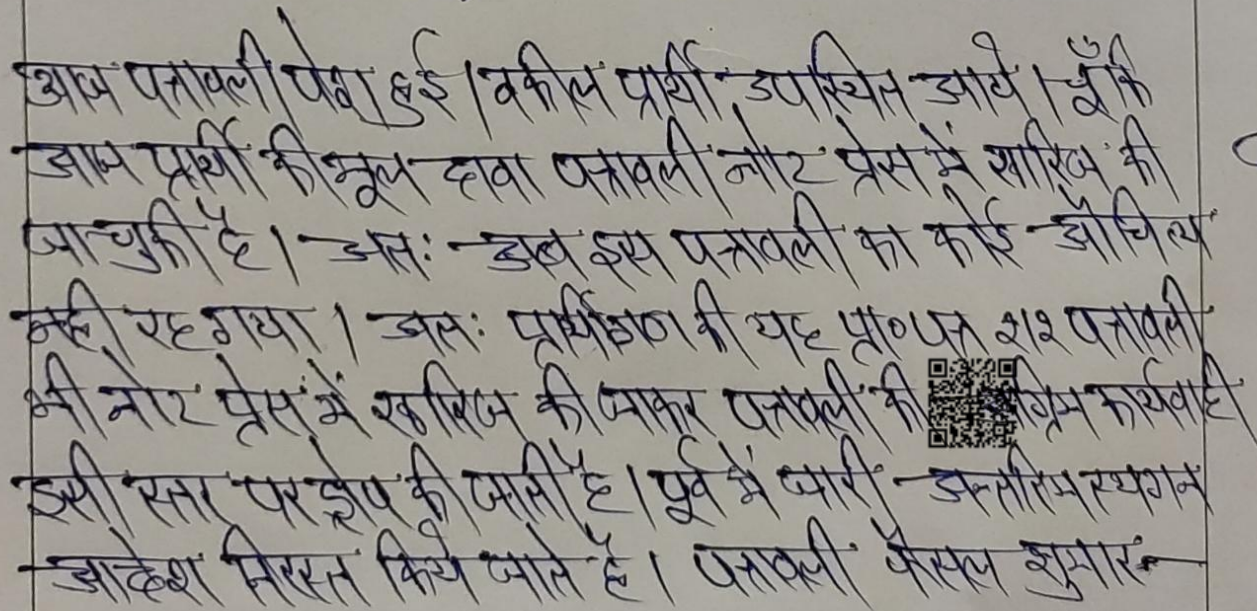 आज पत्रावली पेश हुई। वकील प्रार्थी उपस्थित आये। चूँकि
आज प्रार्थी की मूल दावा पत्रावली नोट प्रेस में खारिज की
जा चुकी है। अतः अब इस पत्रावली का कोई औचित्य
नहीं रह गया। अतः प्रार्थीगण की यह प्रा०पत्र 212 पत्रावली
भी नोट प्रेस में खारिज की जाकर पत्रावली की ग्रिम कार्यवाही
इसी स्तर पर ड्रोप की जाती है। पूर्व में जारी अन्तरिम स्थगन
आदेश निरस्त किये जाते है। पत्रावली फैसल शुमार